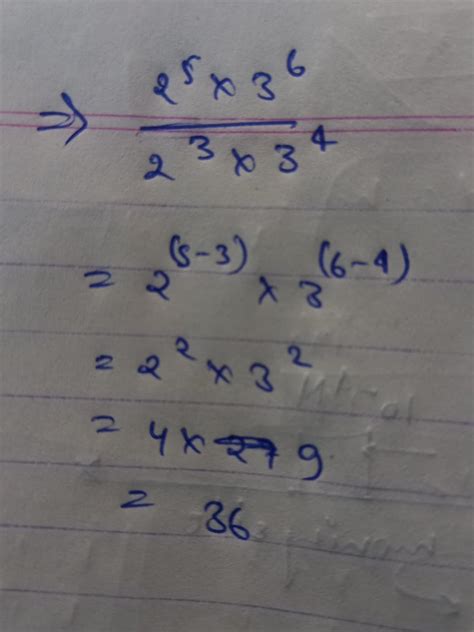 ⇒ 2⁵ × 3⁶
2³ × 3⁴
= 2⁽⁵⁻³⁾ × 3⁽⁶⁻⁴⁾
= 2² × 3²
= 4 × 9
= 36